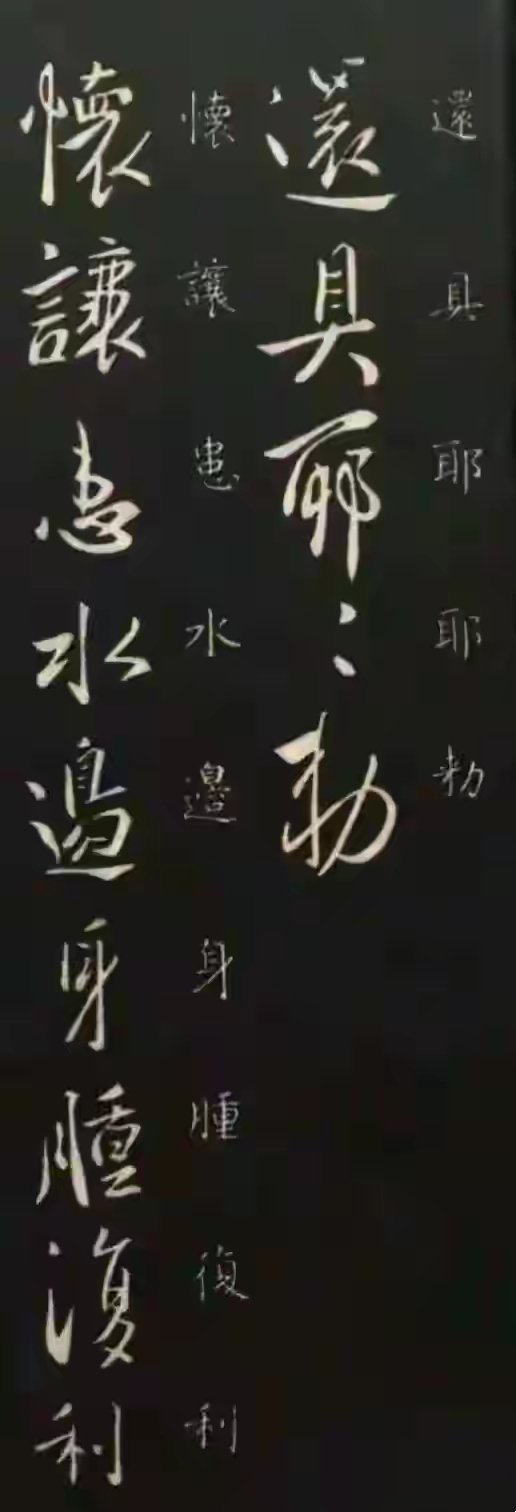 還具耶耶勅
還具耶〻勅
懷讓患水邊身腫復利
懷讓患水邊身腫復利